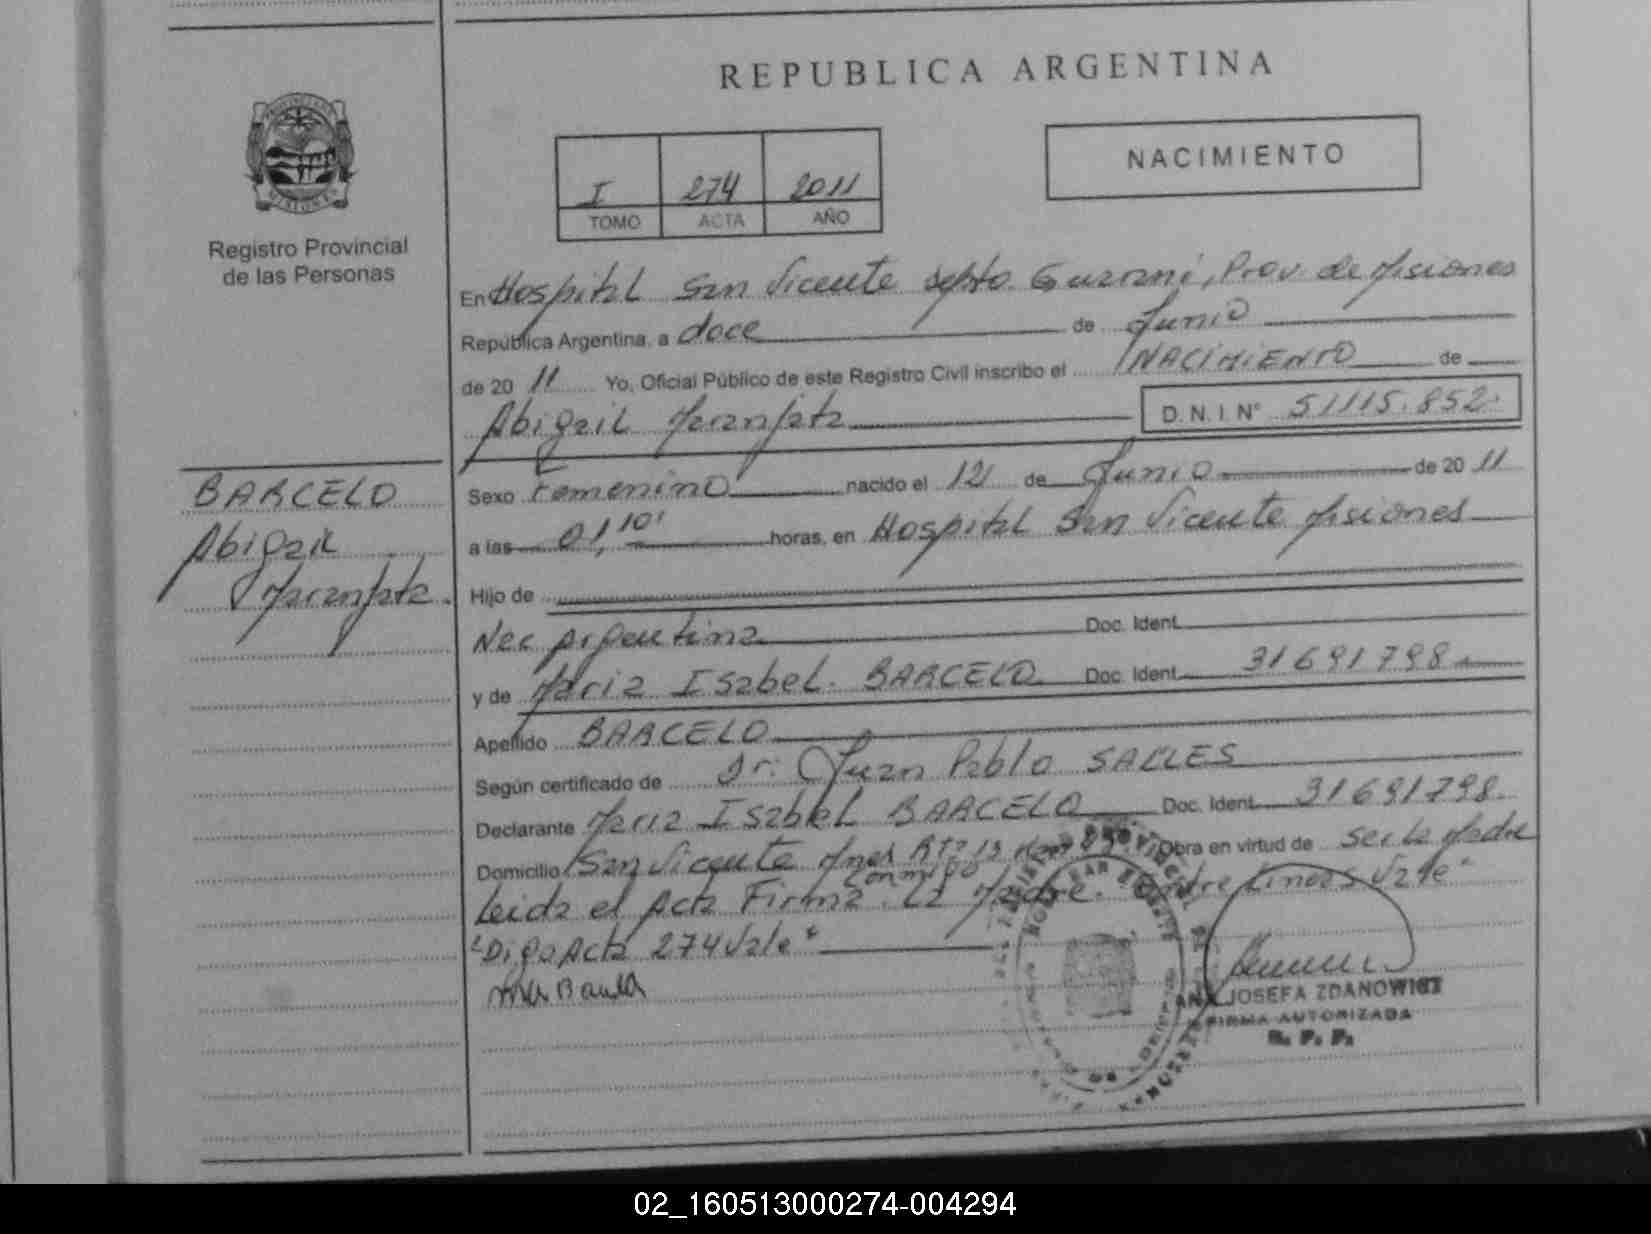 REPUBLICA ARGENTINA
NACIMIENTO
I 274 2011
TOMO ACTA AÑO
Registro Provincial
de las Personas
En Hospital San Vicente Depto. Guarani, Prov. de Misiones
República Argentina, a doce de Junio
de 20 11 Yo, Oficial Público de este Registro Civil inscribo el NACIMIENTO de
Abigail Maranjata D. N. I. N° 51115.852
BARCELO
Abigail
Maranjata
Sexo Femenino nacido el 12 de Junio de 20 11
a las 01,10' horas, en Hospital San Vicente Misiones
Hijo de
Nac Argentina Doc. Ident.
y de Maria Isabel. BARCELO Doc. Ident. 31691798
Apellido BARCELO
Según certificado de Dr. Juan Pablo SALLES
Declarante Maria Isabel BARCELO Doc. Ident. 31691798
Domicilio San Vicente Mnes Obra en virtud de ser la Madre
conmigo
Leida el Acta Firma La Madre. Entre Lineas Vale"
"Digo Acta 274 Vale"
ANA JOSEFA ZDANOWICZ
FIRMA AUTORIZADA
R. P. P.
02_160513000274-004294